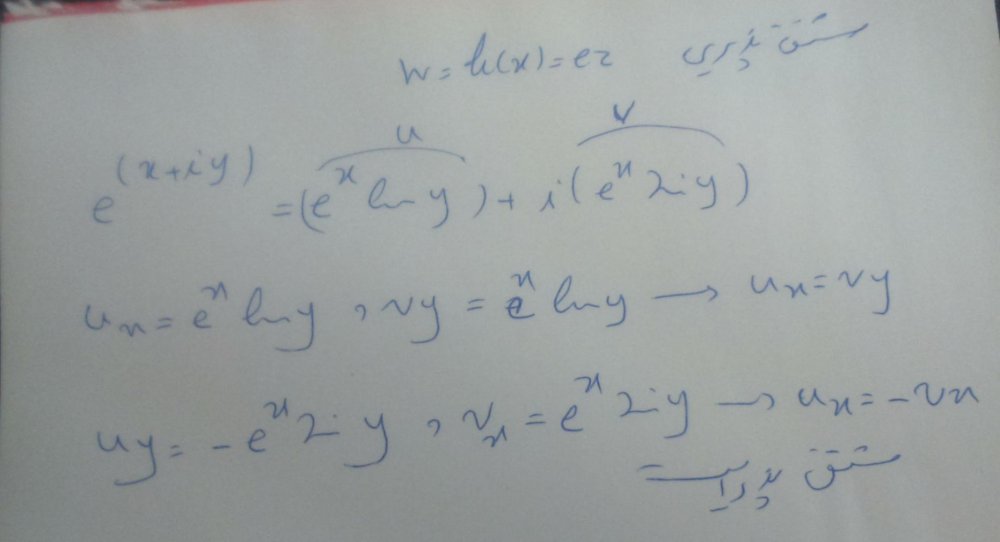 w = h(x) = ez مشتق پذیری
u v
e^(x+iy) = (e^x ln y) + i(e^x sin y)
u_x = e^x ln y , v_y = e^x ln y → u_x = v_y
u_y = -e^x sin y , v_x = e^x sin y → u_x = -v_x
مشتق پذیر است